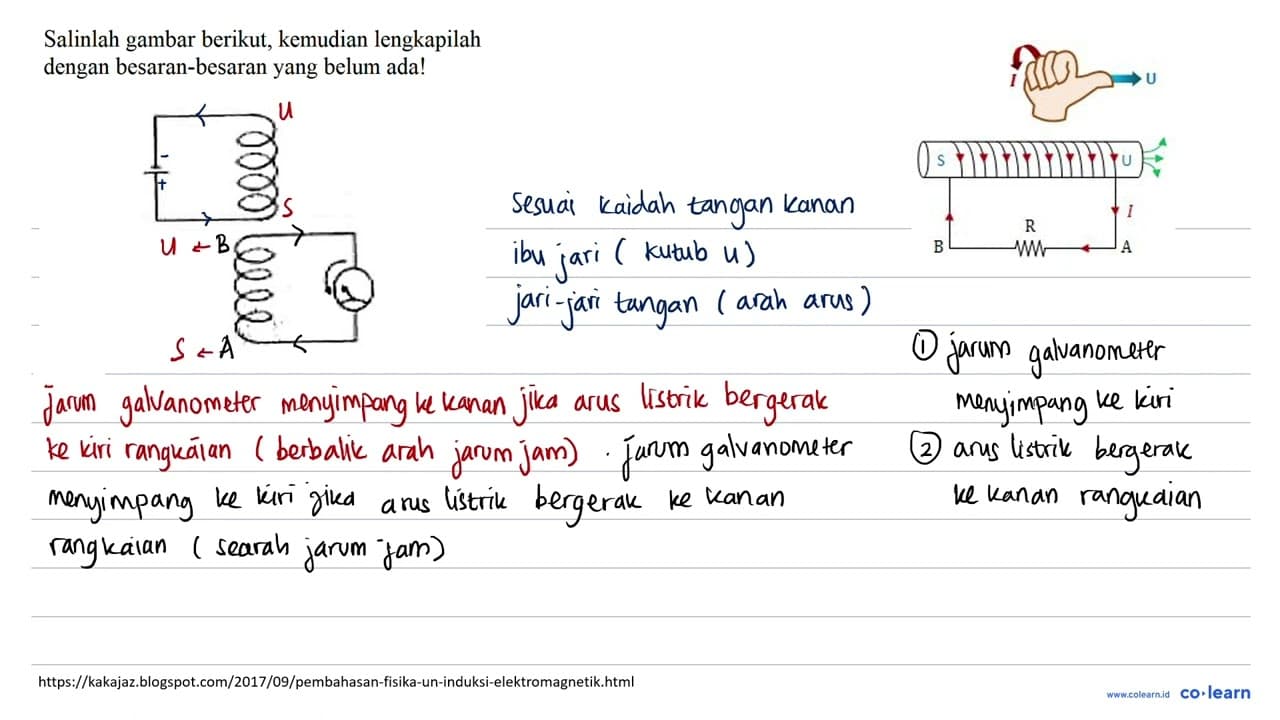 Salinlah gambar berikut, kemudian lengkapilah
dengan besaran-besaran yang belum ada!
U
-
+
S
U ← B
S ← A
Sesuai kaidah tangan kanan
ibu jari ( kutub u)
jari-jari tangan ( arah arus)
I
U
S
U
I
R
B
A
① jarum galvanometer
menyimpang ke kiri
② arus listrik bergerak
ke kanan rangkaian
Jarum galvanometer menyimpang ke kanan jika arus listrik bergerak
ke kiri rangkaian ( berbalik arah jarum jam) . Jarum galvanometer
menyimpang ke kiri jika arus listrik bergerak ke kanan
rangkaian ( searah jarum jam)
https://kakajaz.blogspot.com/2017/09/pembahasan-fisika-un-induksi-elektromagnetik.html
www.colearn.id
co·learn